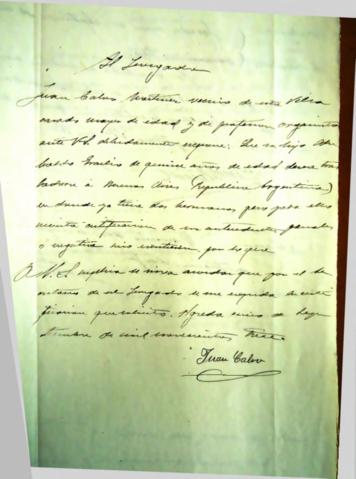 Al Juzgado
Juan Calvo Martinez vecino de esta Villa
casado mayor de edad y de profesion organista
ante V.S. debidamente expone: Que su hijo
de quince años de edad desea tras
ladarse á Buenos Aires (Republica Argentina)
en donde ya tiene dos hermanos pero para ello
necesita certificacion de sus antecedentes penales
o negativa por lo que
A V.S. suplica se sirva acordar que por el Se
cretario de ese Juzgado le sea expedida la certi
ficacion que solicita. Agreda cinco de Sep
tiembre de mil novecientos trece.
Juan Calvo